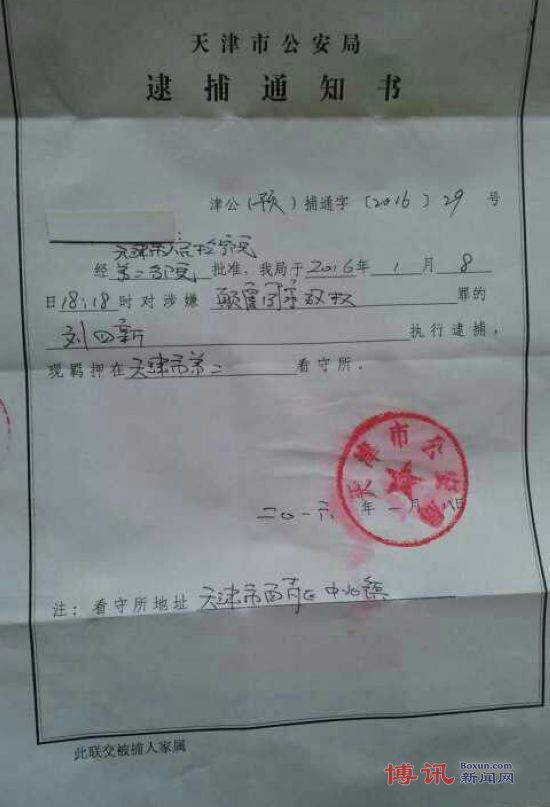 天津市公安局
逮捕通知书
津公(预)捕通字〔2016〕29号
天津市人民检察院
经第二分院批准，我局于2016年1月8
日18:18时对涉嫌颠覆国家政权罪的
刘四新执行逮捕，
现羁押在天津市第二看守所。
天津市公安局
二〇一六年一月八日
注：看守所地址天津市西青区中北镇
此联交被捕人家属
博讯 Boxun.com
新闻网